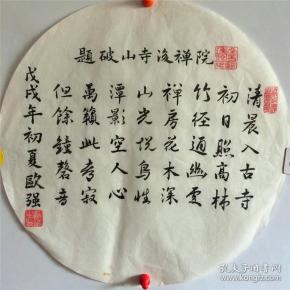 題破山寺後禅院
清晨入古寺
初日照高林
竹径通幽處
禅房花木深
山光悦鳥性
潭影空人心
萬籟此寂
但餘鐘磬音
戊戌年初夏歐强
孔夫子旧书网